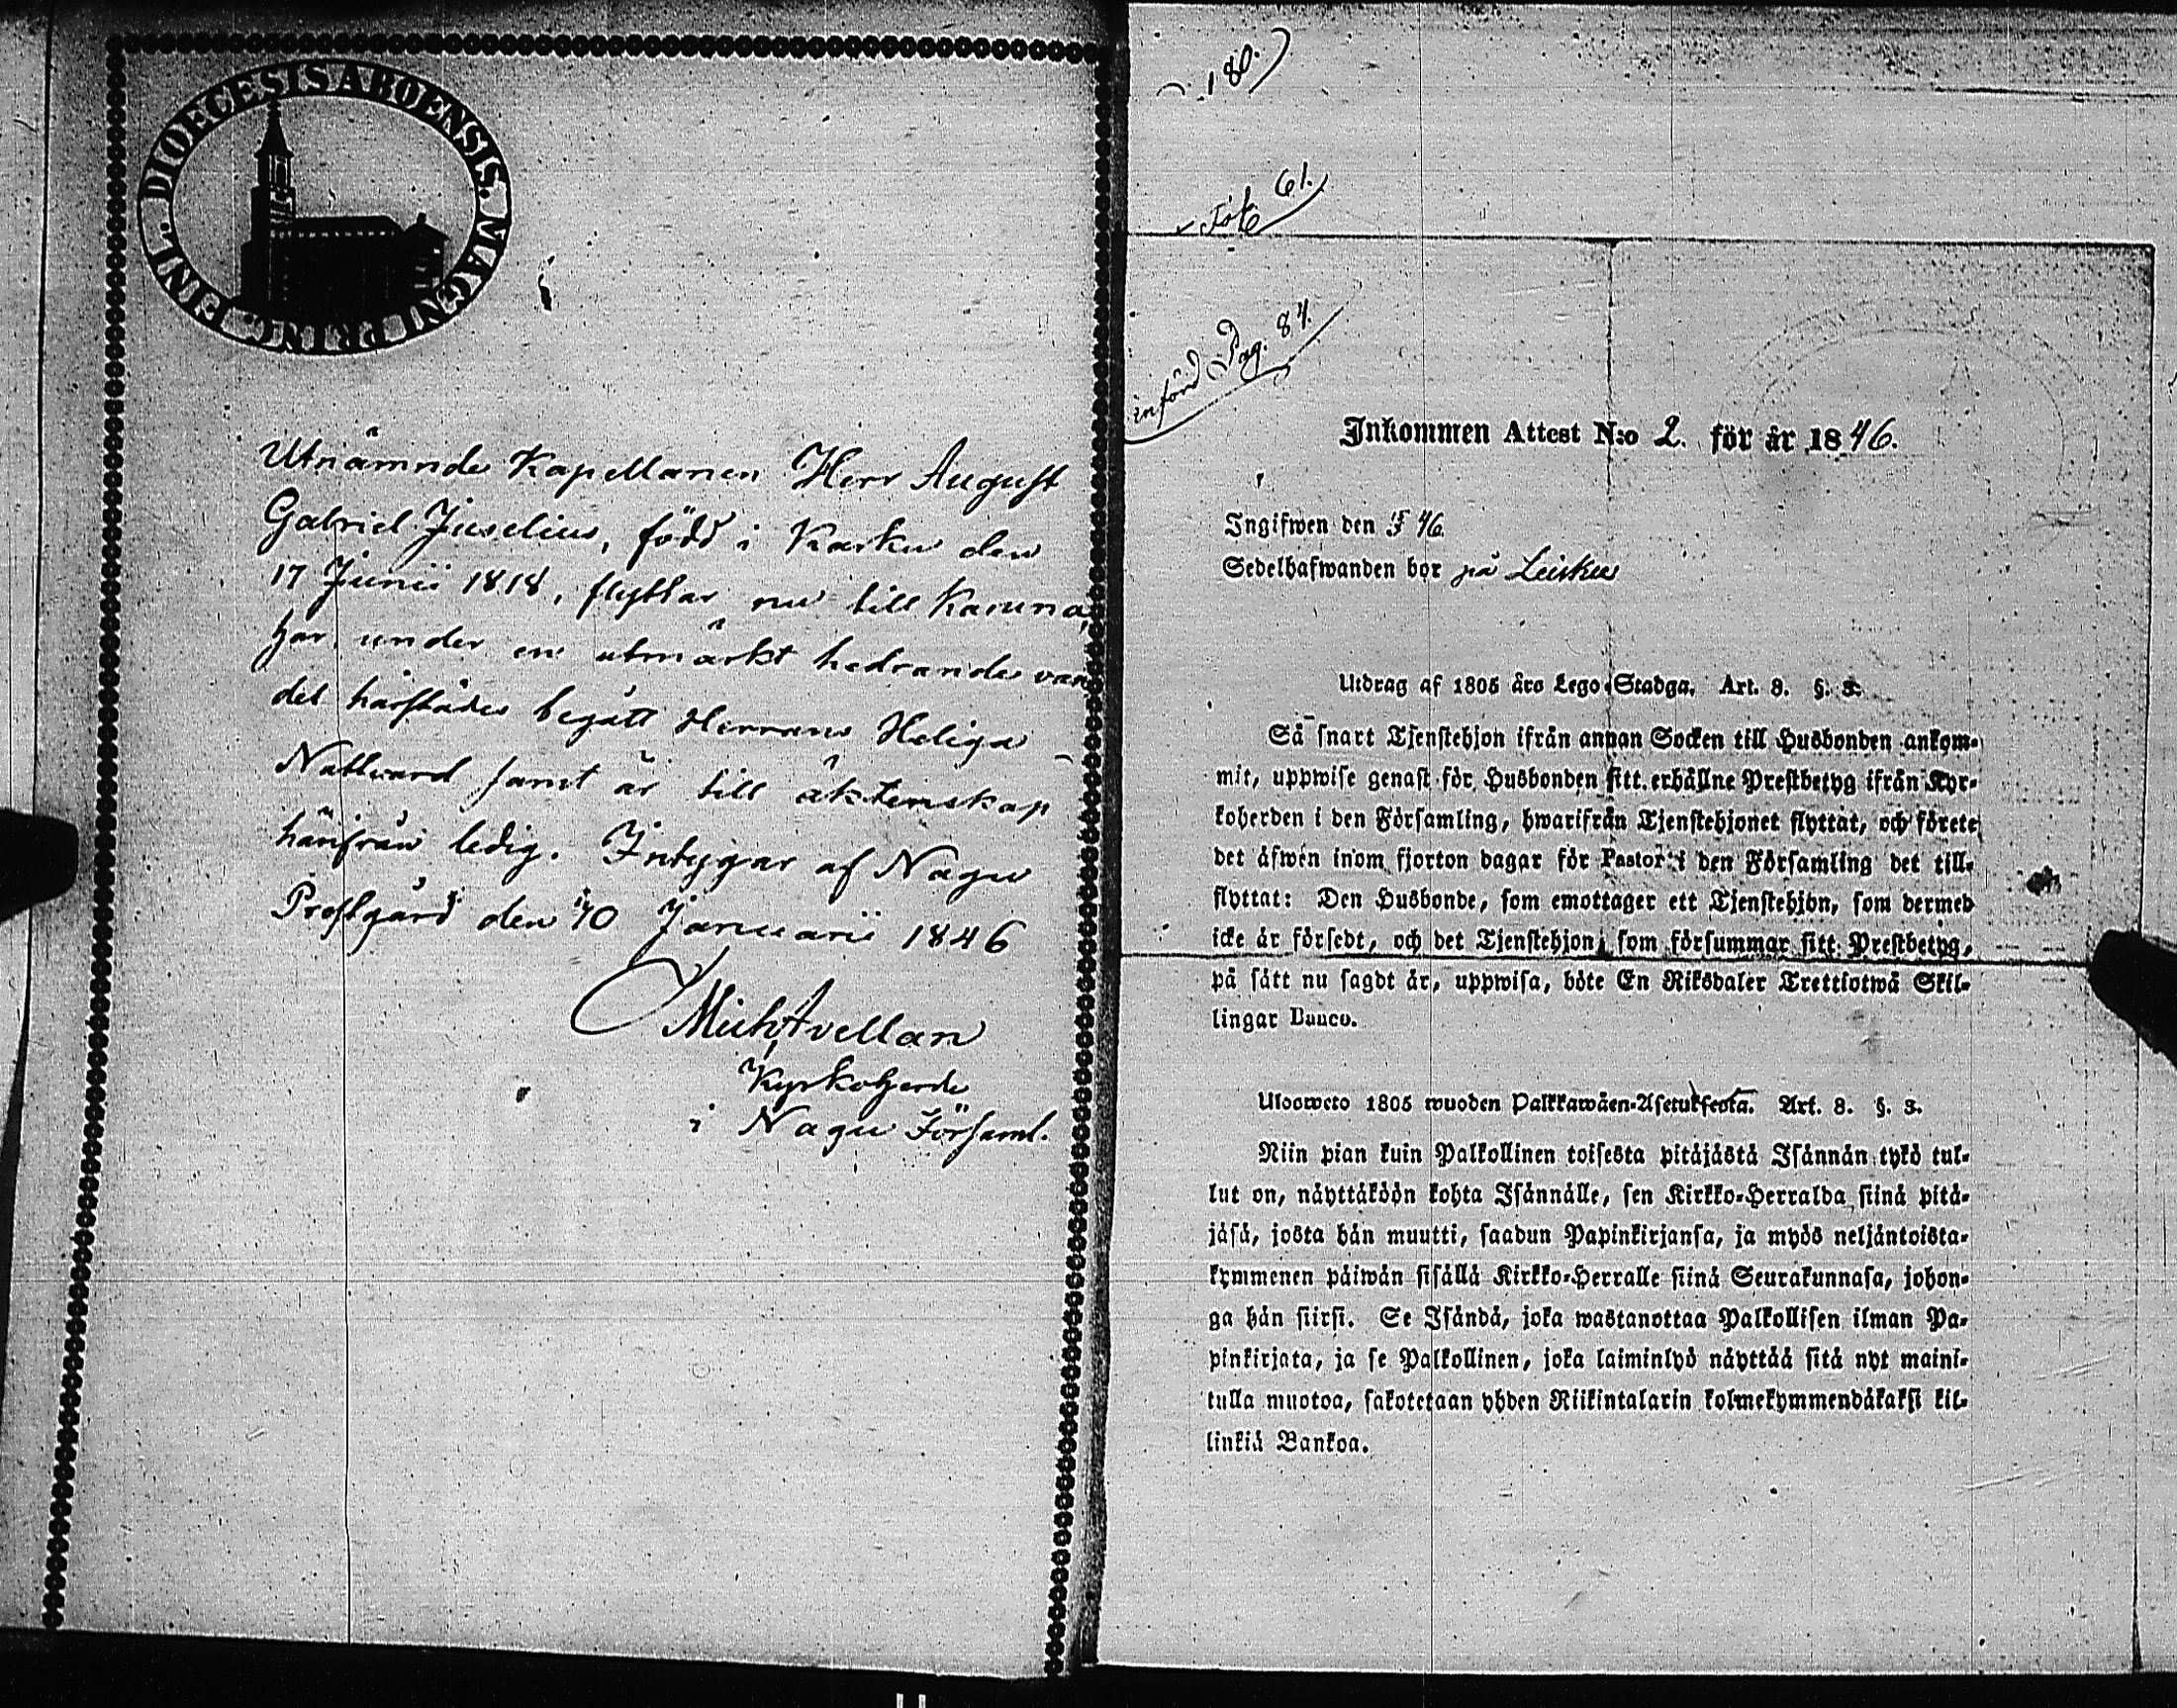 DIOECESIS ABOENSIS. MAGNI PRINC. FINL.
Utnämnde Kapellanen Herr August
Gabriel Juselius, född i Karku den
17 Junii 1818, flyttar nu till Karuna,
har under en utmärkt hedrande van
del härstädes begått Herrans Heliga
Nattvard samt är till äktenskap
härifrån ledig. Intygar af Nagu
Prestgård den 10 Januarii 1846
Mich Avellan
Kyrkoherde
i Nagu Församl.
180.
61.
införd Pag. 84.
Inkommen Attest N:o 2. för år 1846.
Ingifwen den 46
Sedelhafwanden bor på Leiskus
Utdrag af 1805 års Lego-Stadga. Art. 8. §. 3.
Så snart Tjenstehjon ifrån annan Socken till Husbonden ankom-
mit, uppwise genast för Husbonden sitt erhållne Prestbetyg ifrån Kyr-
koherden i den Församling, hwarifrån Tjenstehjonet flyttat, och förete
det äfwen inom fjorton dagar för Pastor i den Församling det till-
flyttat: Den Husbonde, som emottager ett Tjenstehjon, som dermed
icke är försedt, och det Tjenstehjon, som försummar sitt Prestbetyg,
på sätt nu sagdt är, uppwisa, böte En Riksdaler Trettiotwå Skil-
lingar Banco.
Uloosweto 1805 wuoden Palkkawäen-Asetuksesta. Art. 8. §. 3.
Niin pian kuin Palkollinen toisesta pitäjästä Isännän tykö tul-
lut on, näyttäköön kohta Isännälle, sen Kirkko-Herralda siinä pitä-
jäsä, josta hän muutti, saadun Papinkirjansa, ja myös neljäntoista-
kymmenen päiwän sisällä Kirkko-Herralle siinä Seurakunnasa, johon-
ga hän siirsi. Se Isändä, joka wastanottaa Palkollisen ilman Pa-
pinkirjata, ja se Palkollinen, joka laiminlyö näyttää sitä nyt maini-
tulla muotoa, sakotetaan yhden Riikintalarin kolmekymmendäkaksi kil-
linkiä Bankoa.